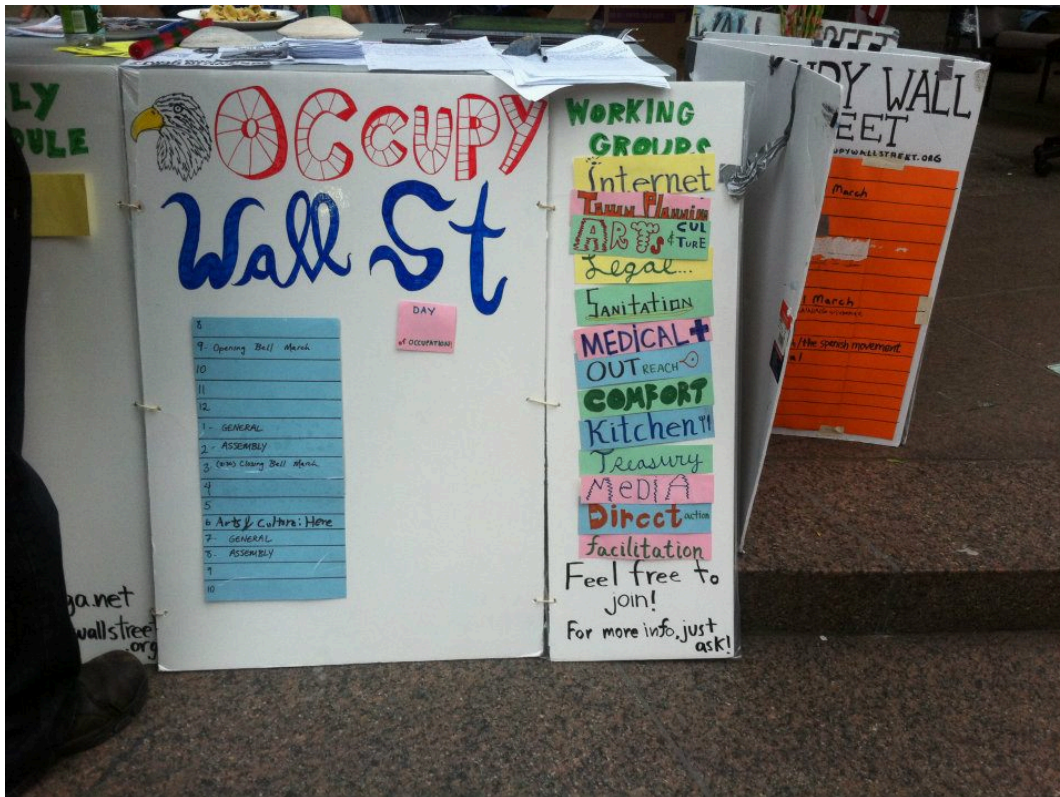 LY
DULE
ga.net
wallstreet
.org
OCCUPY
Wall St
DAY
of OCCUPATION
8
9- Opening Bell March
10
11
12
1- GENERAL
2- ASSEMBLY
3 Closing Bell March
4
5
6 Arts & Culture: Here
7- GENERAL
8- ASSEMBLY
9
10
WORKING
GROUPS
Internet
Town Planning
ARTS & CULTURE
Legal...
SANITATION
MEDICAL
OUTREACH
COMFORT
Kitchen
Treasury
MEDIA
Direct action
facilitation
Feel free to
join!
For more info, just
ask!
PY WALL
EET
UPYWALLSTREET.ORG
March
March
/the spanish movement